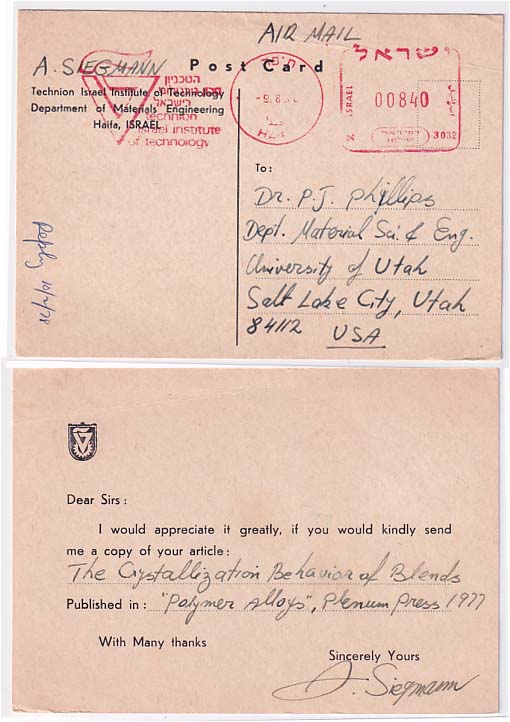 AIR MAIL
A. SIEGMANN
Post Card
Technion Israel Institute of Technology
Department of Materials Engineering
Haifa, ISRAEL
הטכניון
מכון טכנולוגי
לישראל
technion
israel institute
of technology
ישראל
ISRAEL
00840
3032
To:
Dr. P.J. Phillips
Dept. Material Sci. & Eng.
University of Utah
Salt Lake City, Utah
84112 USA
Dear Sirs :
I would appreciate it greatly, if you would kindly send
me a copy of your article :
The Crystallization Behavior of Blends
Published in : "Polymer Alloys", Plenum Press 1977
With Many thanks
Sincerely Yours
A. Siegmann